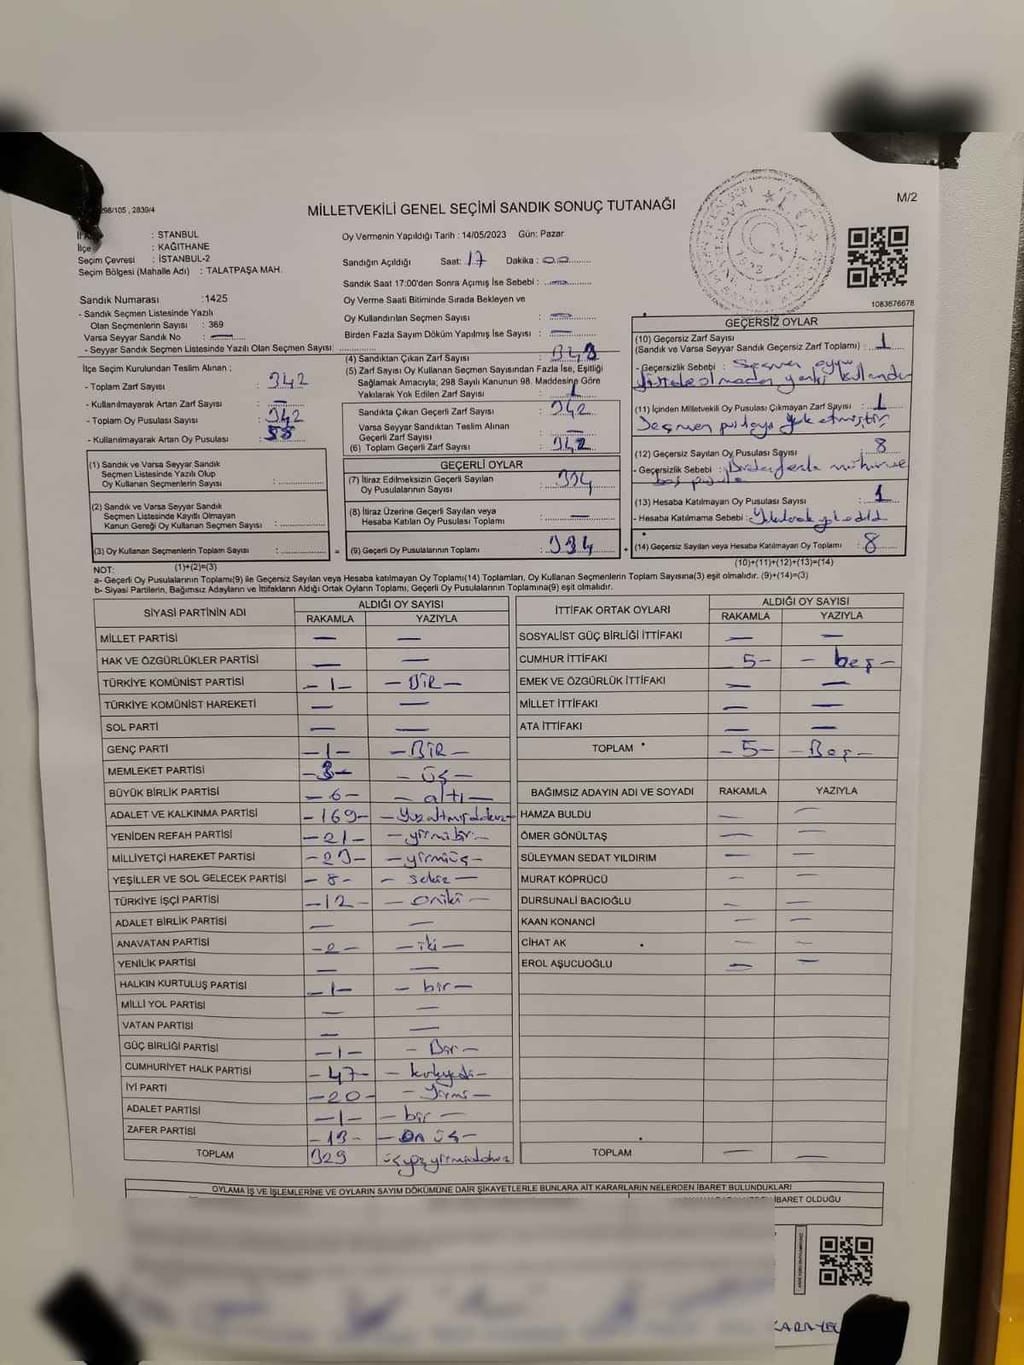 298/105 , 2839/4
MİLLETVEKİLİ GENEL SEÇİMİ SANDIK SONUÇ TUTANAĞI
M/2
: İSTANBUL
İlçe : KAĞITHANE
Seçim Çevresi : İSTANBUL-2
Seçim Bölgesi (Mahalle Adı) : TALATPAŞA MAH.
Sandık Numarası : 1425
- Sandık Seçmen Listesinde Yazılı
Olan Seçmenlerin Sayısı : 369
Varsa Seyyar Sandık No : —
- Seyyar Sandık Seçmen Listesinde Yazılı Olan Seçmen Sayısı:
İlçe Seçim Kurulundan Teslim Alınan ;
- Toplam Zarf Sayısı : 342
- Kullanılmayarak Artan Zarf Sayısı : —
- Toplam Oy Pusulası Sayısı : 342
- Kullanılmayarak Artan Oy Pusulası :
(1) Sandık ve Varsa Seyyar Sandık
Seçmen Listesinde Yazılı Olup
Oy Kullanan Seçmenlerin Sayısı :
(2) Sandık ve Varsa Seyyar Sandık
Seçmen Listesinde Kayıtlı Olmayan
Kanun Gereği Oy Kullanan Seçmen Sayısı :
(3) Oy Kullanan Seçmenlerin Toplam Sayısı :
(1)+(2)=(3)
Oy Vermenin Yapıldığı Tarih : 14/05/2023 Gün: Pazar
Sandığın Açıldığı Saat: 17 Dakika : 00
Sandık Saat 17:00'den Sonra Açımış İse Sebebi : —
Oy Verme Saati Bitiminde Sırada Bekleyen ve
Oy Kullandırılan Seçmen Sayısı : —
Birden Fazla Sayım Döküm Yapılmış İse Sayısı : —
(4) Sandıktan Çıkan Zarf Sayısı : 343
(5) Zarf Sayısı Oy Kullanan Seçmen Sayısından Fazla İse, Eşitliği
Sağlamak Amacıyla; 298 Sayılı Kanunun 98. Maddesine Göre
Yakılarak Yok Edilen Zarf Sayısı : 1
Sandıkta Çıkan Geçerli Zarf Sayısı : 342
Varsa Seyyar Sandıktan Teslim Alınan
Geçerli Zarf Sayısı : —
(6) Toplam Geçerli Zarf Sayısı : 342
GEÇERLİ OYLAR
(7) İtiraz Edilmeksizin Geçerli Sayılan
Oy Pusulalarının Sayısı : 334
(8) İtiraz Üzerine Geçerli Sayılan veya
Hesaba Katılan Oy Pusulası Toplamı : —
(9) Geçerli Oy Pusulalarının Toplamı : 334
1083676678
GEÇERSİZ OYLAR
(10) Geçersiz Zarf Sayısı
(Sandık ve Varsa Seyyar Sandık Geçersiz Zarf Toplamı) : 1
- Geçersizlik Sebebi : Seçmen oyu
kullandır
(11) İçinden Milletvekili Oy Pusulası Çıkmayan Zarf Sayısı : 1
Seçmen pusulayı yok etmiştir
(12) Geçersiz Sayılan Oy Pusulası Sayısı : 8
- Geçersizlik Sebebi : Birden fazla mühür ve
boş pusula
(13) Hesaba Katılmayan Oy Pusulası Sayısı : 1
- Hesaba Katılmama Sebebi :
(14) Geçersiz Sayılan veya Hesaba Katılmayan Oy Toplamı : 8
(10)+(11)+(12)+(13)=(14)
NOT:
a- Geçerli Oy Pusulalarının Toplamı(9) ile Geçersiz Sayılan veya Hesaba katılmayan Oy Toplamı(14) Toplamları, Oy Kullanan Seçmenlerin Toplam Sayısına(3) eşit olmalıdır. (9)+(14)=(3)
b- Siyasi Partilerin, Bağımsız Adayların ve İttifakların Aldığı Ortak Oyların Toplamı, Geçerli Oy Pusulalarının Toplamına(9) eşit olmalıdır.
SİYASİ PARTİNİN ADI ALDIĞI OY SAYISI
RAKAMLA YAZIYLA
MİLLET PARTİSİ — —
HAK VE ÖZGÜRLÜKLER PARTİSİ — —
TÜRKİYE KOMÜNİST PARTİSİ -1- - BİR -
TÜRKİYE KOMÜNİST HAREKETİ — —
SOL PARTİ — —
GENÇ PARTİ -1- - BİR -
MEMLEKET PARTİSİ -3- - üç -
BÜYÜK BİRLİK PARTİSİ -6- - altı -
ADALET VE KALKINMA PARTİSİ -169- - Yüzaltmışdokuz -
YENİDEN REFAH PARTİSİ -21- - yirmibir -
MİLLİYETÇİ HAREKET PARTİSİ -23- - yirmiüç -
YEŞİLLER VE SOL GELECEK PARTİSİ -8- - sekiz -
TÜRKİYE İŞÇİ PARTİSİ -12- - oniki -
ADALET BİRLİK PARTİSİ — —
ANAVATAN PARTİSİ -2- - iki -
YENİLİK PARTİSİ — —
HALKIN KURTULUŞ PARTİSİ -1- - bir -
MİLLİ YOL PARTİSİ — —
VATAN PARTİSİ — —
GÜÇ BİRLİĞİ PARTİSİ -1- - Bir -
CUMHURİYET HALK PARTİSİ -47- - kırkyedi -
İYİ PARTİ -20- - Yirmi -
ADALET PARTİSİ -1- - bir -
ZAFER PARTİSİ -13- - ON üç -
TOPLAM 329 üçyüzyirmidokuz
İTTİFAK ORTAK OYLARI ALDIĞI OY SAYISI
RAKAMLA YAZIYLA
SOSYALİST GÜÇ BİRLİĞİ İTTİFAKI — —
CUMHUR İTTİFAKI 5- - beş -
EMEK VE ÖZGÜRLÜK İTTİFAKI — —
MİLLET İTTİFAKI — —
ATA İTTİFAKI — —
TOPLAM -5- - Beş -
BAĞIMSIZ ADAYIN ADI VE SOYADI RAKAMLA YAZIYLA
HAMZA BULDU — —
ÖMER GÖNÜLTAŞ — —
SÜLEYMAN SEDAT YILDIRIM — —
MURAT KÖPRÜCÜ — —
DURSUNALİ BACIOĞLU — —
KAAN KONANCİ — —
CİHAT AK — —
EROL AŞUCUOĞLU — —
TOPLAM — —
OYLAMA İŞ VE İŞLEMLERİNE VE OYLARIN SAYIM DÖKÜMÜNE DAİR ŞİKAYETLERLE BUNLARA AİT KARARLARIN NELERDEN İBARET BULUNDUKLARI
İBARET OLDUĞU